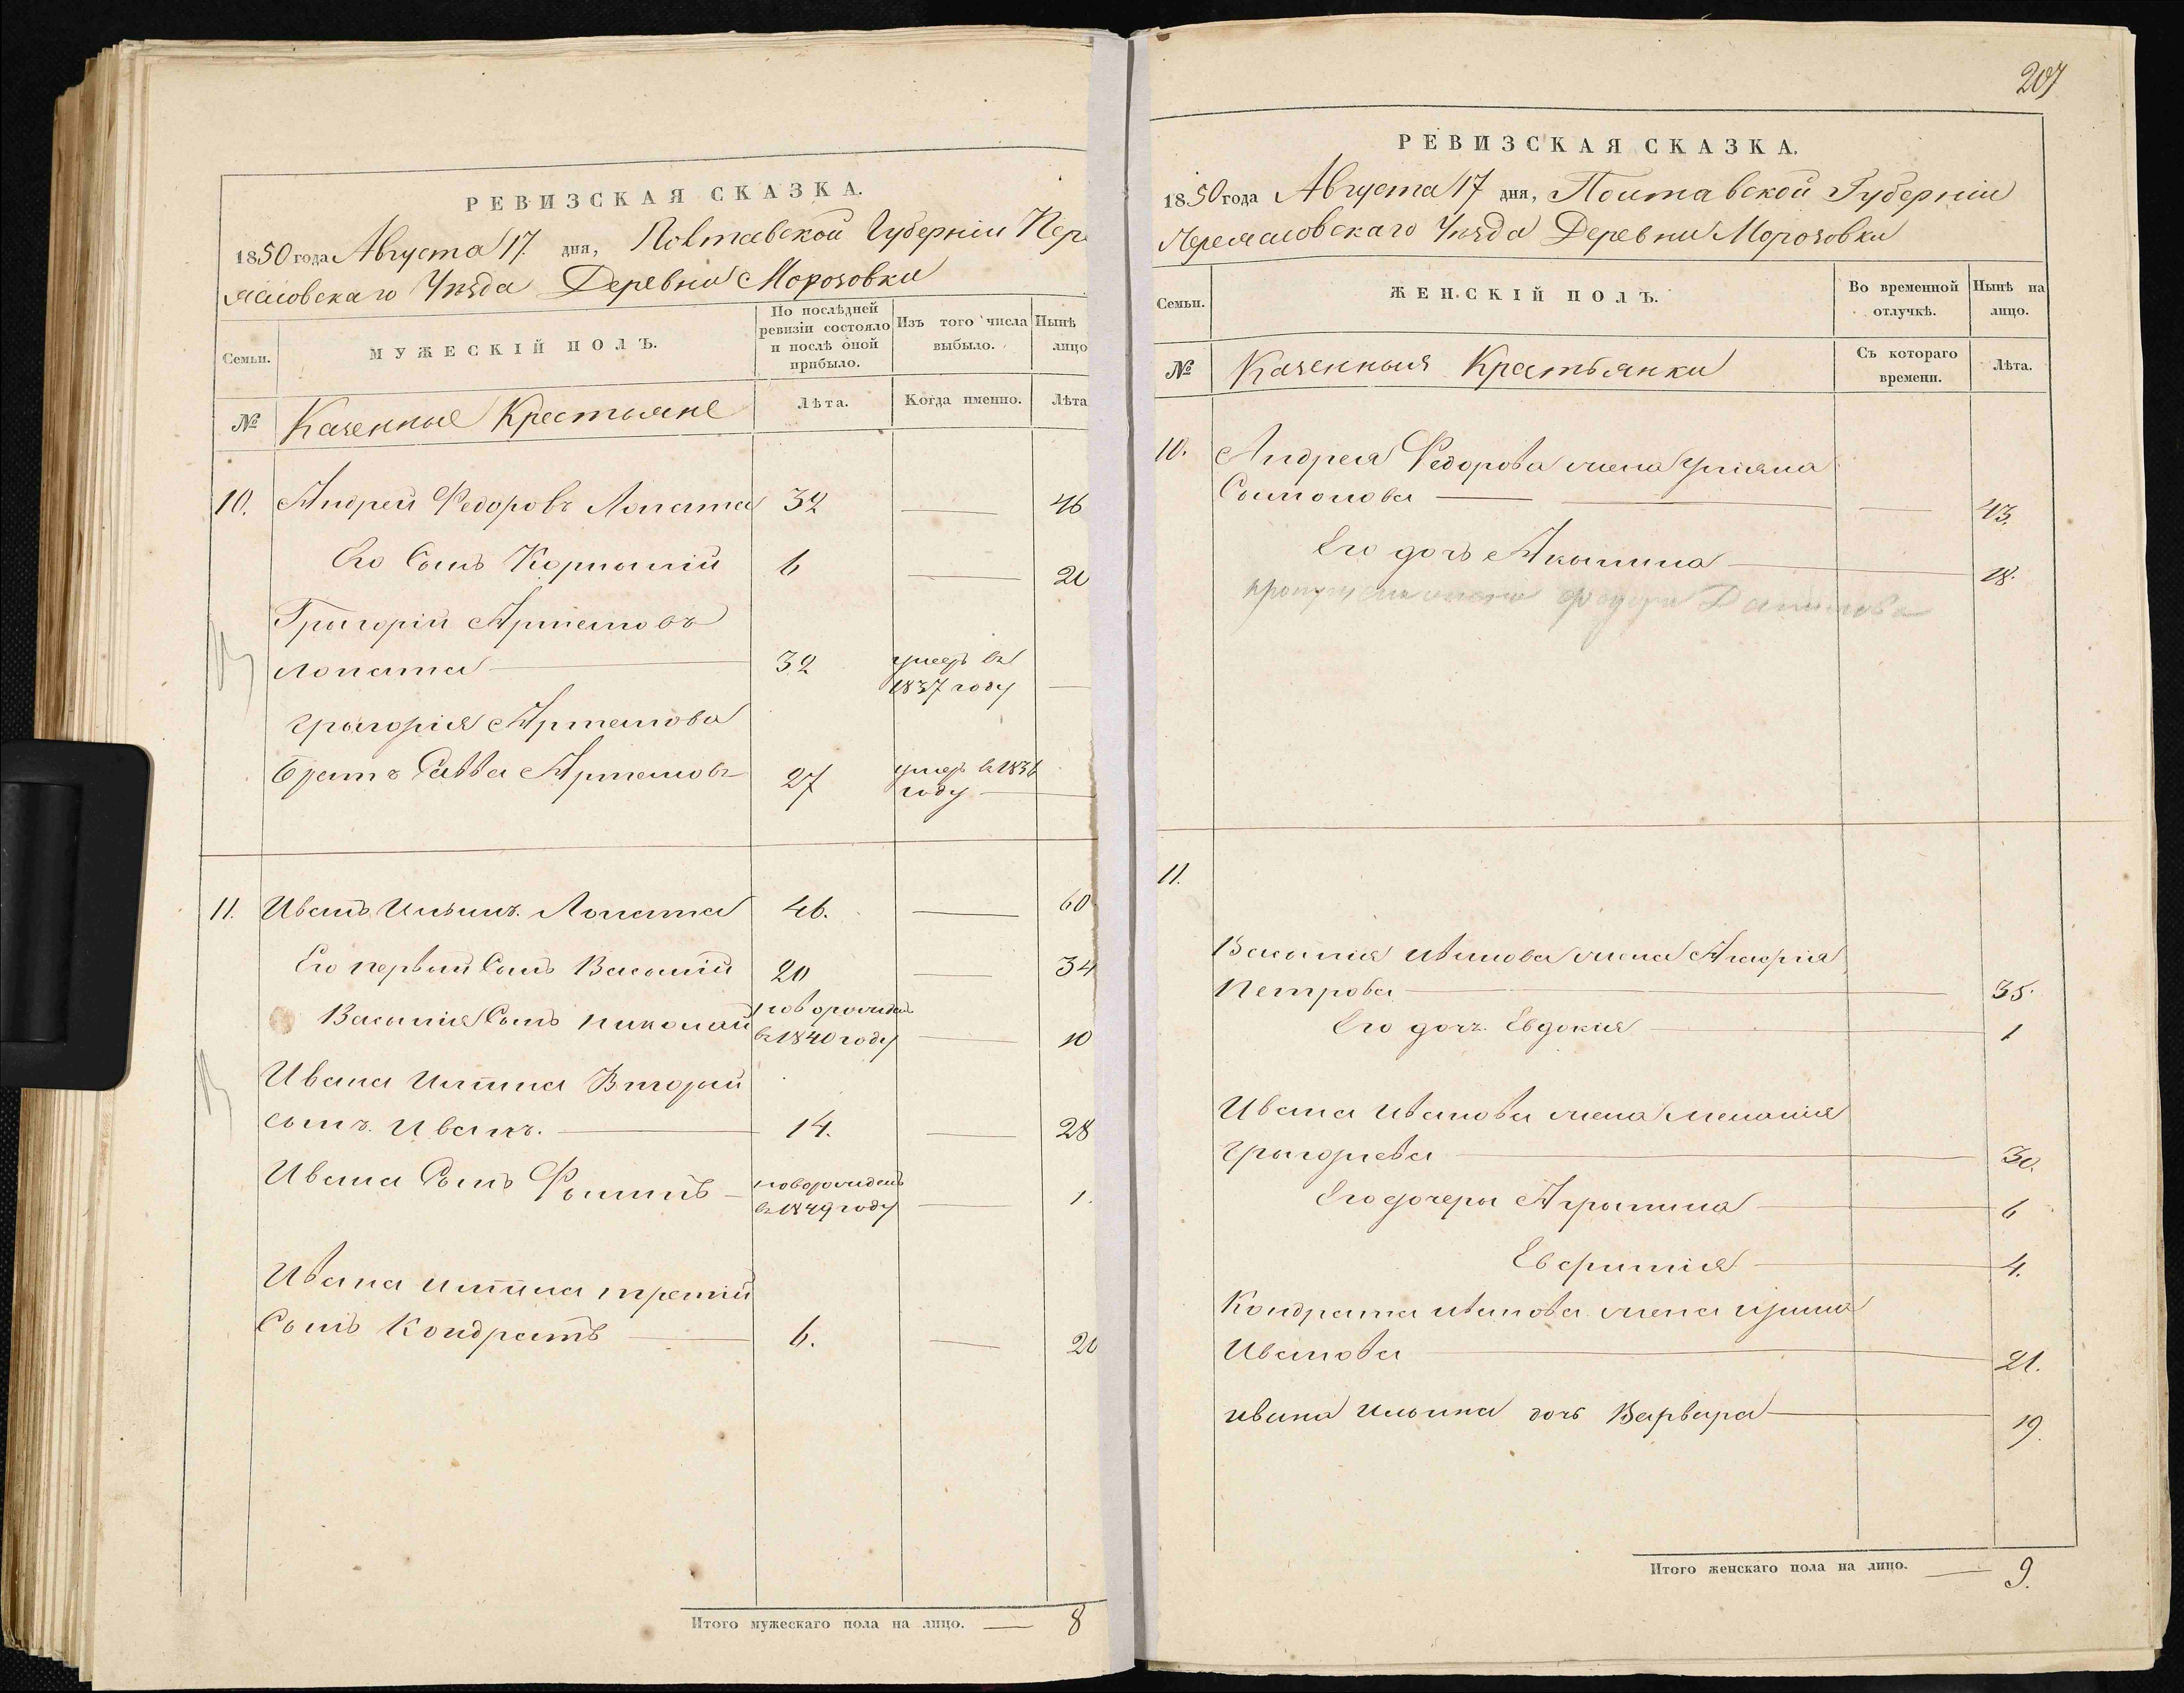 РЕВИЗСКАЯ СКАЗКА.
1850 года Августа 17. дня, Полтавской Губерніи Пере
яславскаго Уѣзда Деревни Морозовки
Семьи.
МУЖЕСКІЙ ПОЛЪ.
По послѣдней
ревизіи состояло
и послѣ оной
прибыло.
Изъ того числа
выбыло.
Нынѣ
лицо
№
Казенные Крестьяне
Лѣта.
Когда именно.
Лѣта
10. Андрей Федоровъ Лопата 32 — 46
Его Сынъ Корнилій 6 — 20
Григорій Артемовъ
Лопата — 32 умеръ въ
1837 году —
Григорія Артемова
Братъ Савва Артемовъ 27 умеръ въ 1836
году —
11. Иванъ Ильинъ Лопата 46. — 60
Его первый Сынъ Василій 20 — 34
Василія Сынъ Николай новорожденъ
въ 1840 году — 10
Ивана Ильина Вторый
сынъ Иванъ. — 14. — 28
Ивана Сынъ Филипъ — новорожденъ
въ 1849 году — 1.
Ивана Ильина третій
Сынъ Кондратъ — 6. — 20
Итого мужескаго пола на лицо. — 8
207
РЕВИЗСКАЯ СКАЗКА.
1850 года Августа 17 дня, Полтавской Губерніи
Переяславскаго Уѣзда Деревни Морозовки
Семьи.
ЖЕНСКІЙ ПОЛЪ.
Во временной
отлучкѣ.
Нынѣ на
лицо.
№
Казенныя Крестьянки
Съ котораго
времени.
Лѣта.
10. Андрея Федорова жена Ульяна
Симонова — — — 43.
Его дочь Акилина — 18.
Данилова
11.
Василія Иванова жена Агафія
Петрова — 35.
Его дочь Евдокія — 1
Ивана Иванова жена Меланія
Григорьева — 30.
Его дочери Агрипина — 6
Евфимія — 4.
Кондрата Иванова жена Ирина
Иванова — 21.
Ивана Ильина дочь Варвара — 19.
Итого женскаго пола на лицо. — 9.